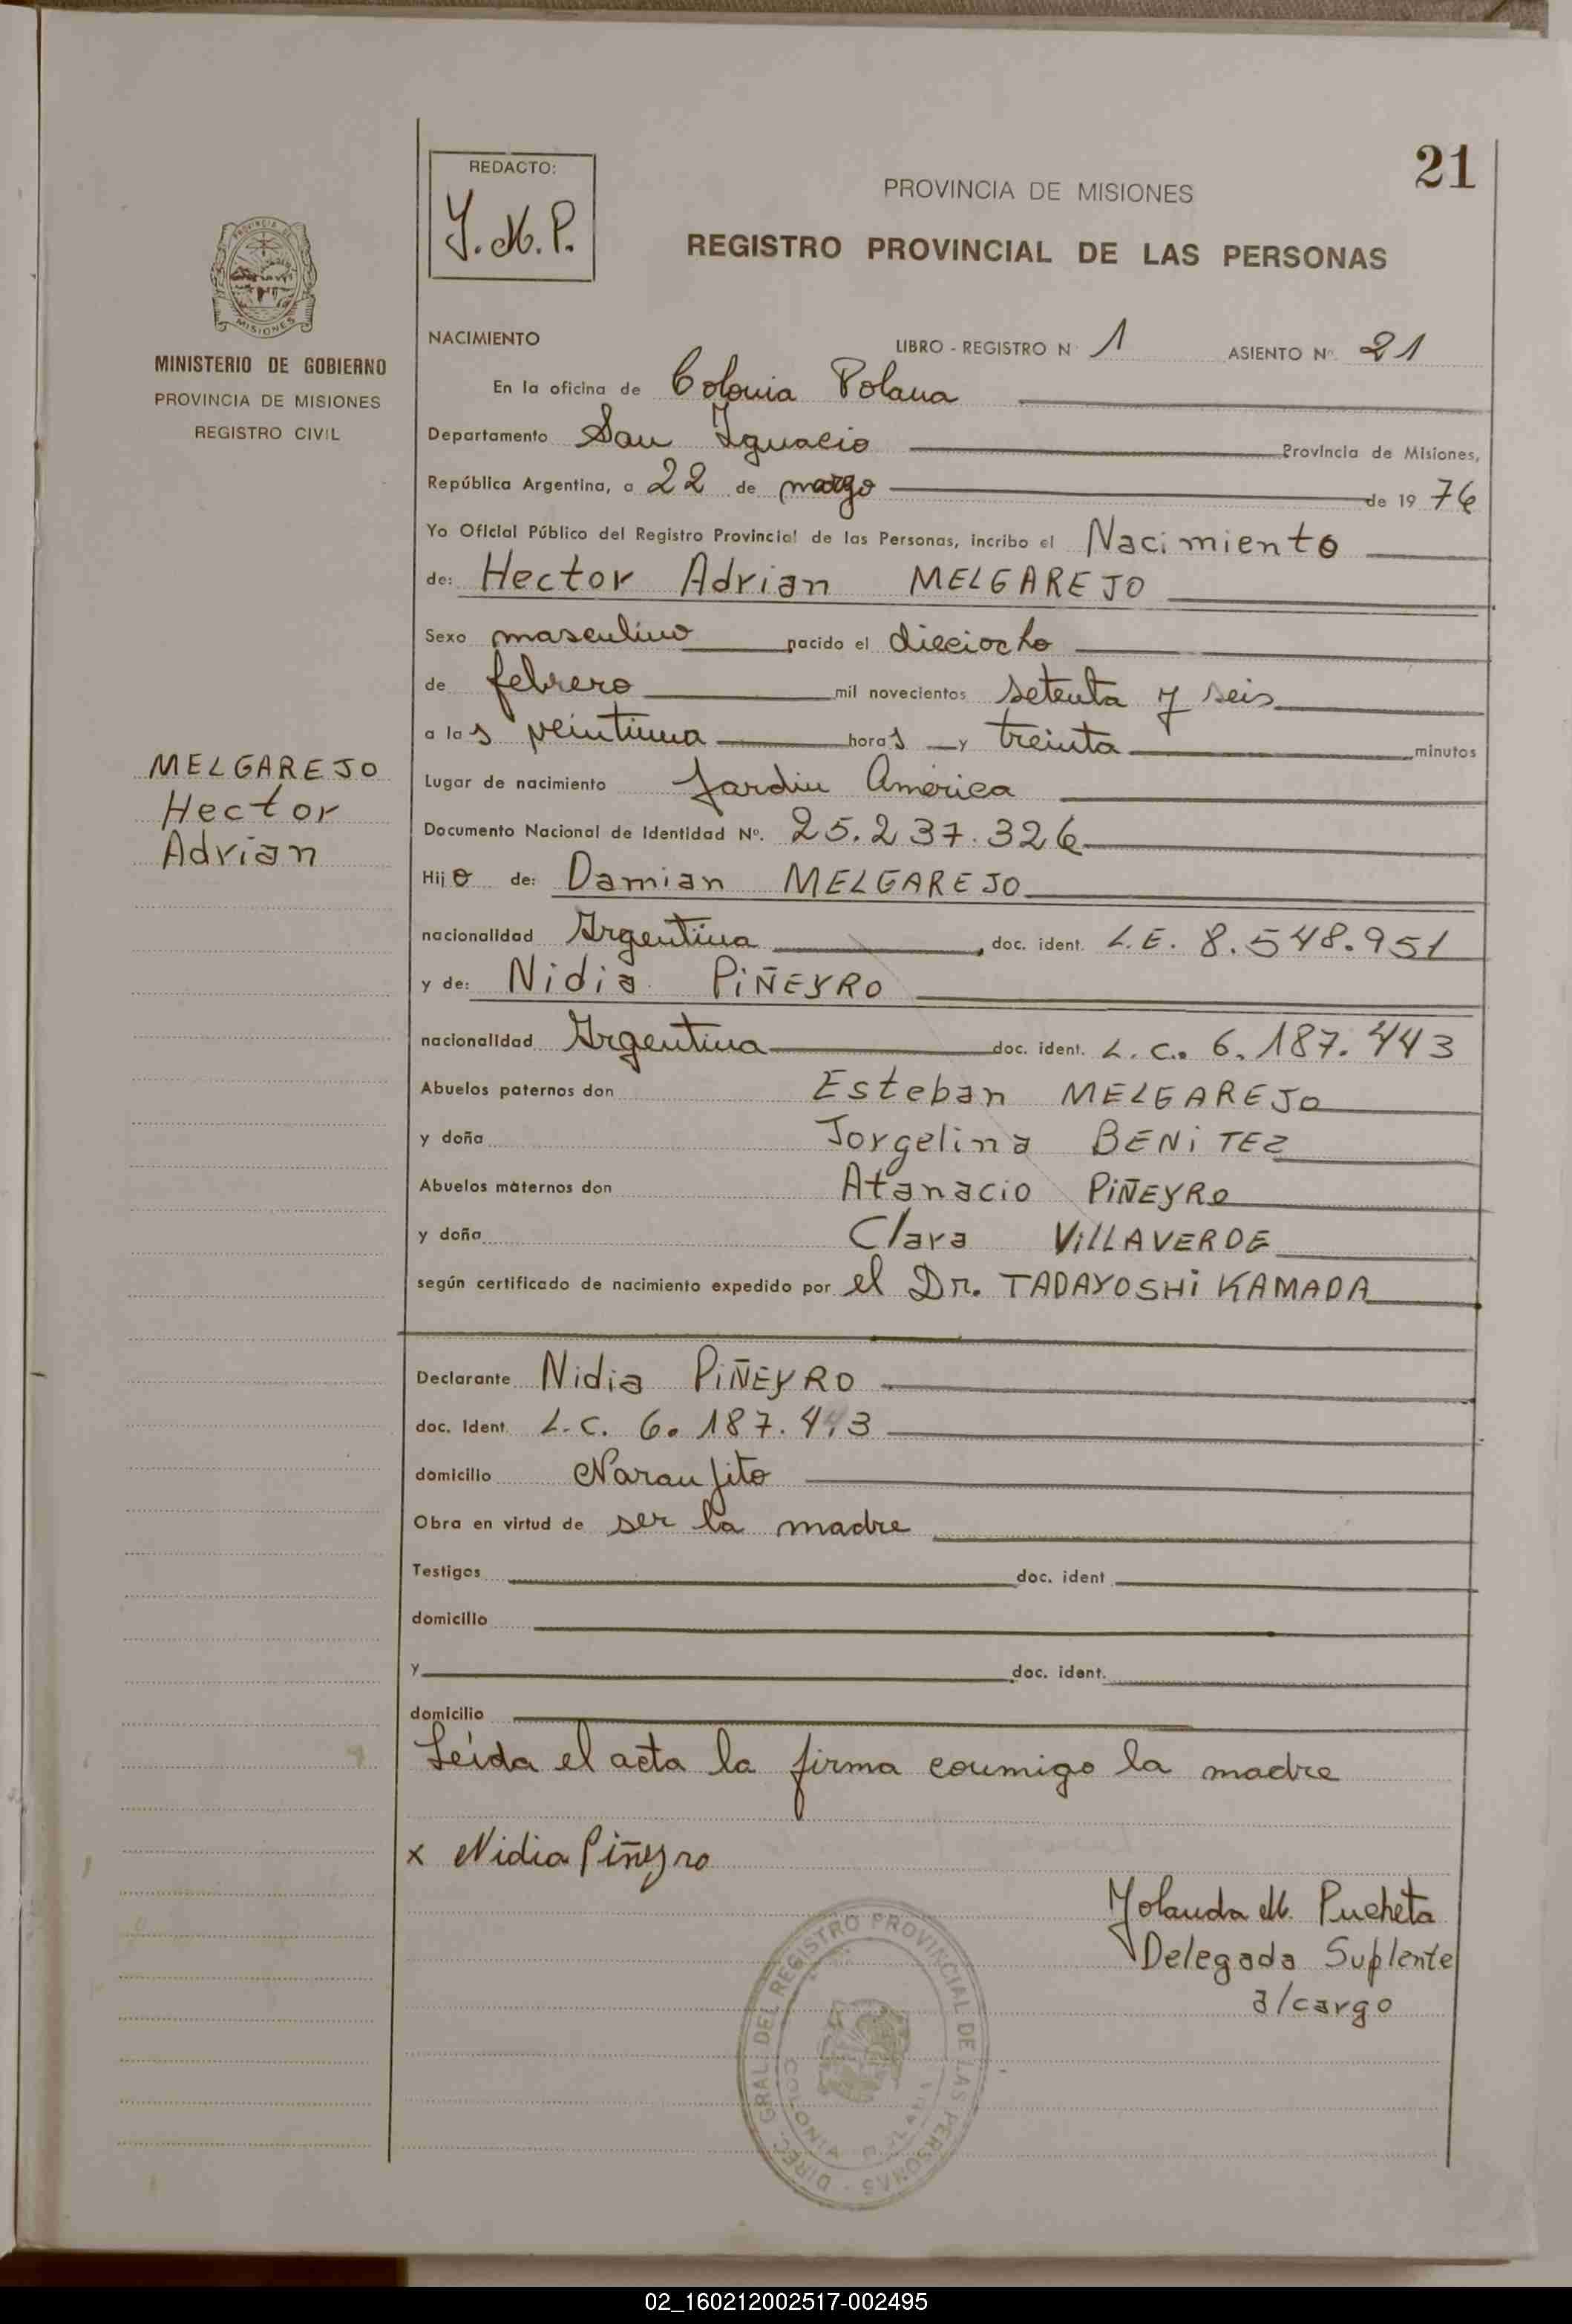 21
REDACTO:
Y.M.P.
PROVINCIA DE MISIONES
REGISTRO PROVINCIAL DE LAS PERSONAS
PROVINCIA DE
MISIONES
MINISTERIO DE GOBIERNO
PROVINCIA DE MISIONES
REGISTRO CIVIL
NACIMIENTO LIBRO - REGISTRO N 1 ASIENTO Nº. 21
En la oficina de Colonia Polana
Departamento San Ignacio Provincia de Misiones,
República Argentina, a 22 de marzo de 19 76
Yo Oficial Público del Registro Provincial de las Personas, incribo el Nacimiento
de: Hector Adrian MELGAREJO
Sexo masculino nacido el dieciocho
de febrero mil novecientos setenta y seis
a las veintiuna horas y treinta minutos
Lugar de nacimiento Jardin América
Documento Nacional de Identidad Nº. 25.237.326
MELGAREJO
Hector
Adrian
Hijo de: Damian MELGAREJO
nacionalidad Argentina, doc. ident. L.E. 8.548.951
y de: Nidia PIÑEYRO
nacionalidad Argentina doc. ident. L.C. 6.187.443
Abuelos paternos don Esteban MELGAREJO
y doña Jorgelina BENITEZ
Abuelos maternos don Atanacio PIÑEYRO
y doña Clara VILLAVERDE
según certificado de nacimiento expedido por el Dr. TADAYOSHI KAMADA
Declarante Nidia PIÑEYRO
doc. Ident. L.C. 6.187.443
domicilio Naranjito
Obra en virtud de ser la madre
Testigos doc. ident
domicilio
y doc. ident.
domicilio
Leída el acta la firma conmigo la madre
x Nidia Piñeyro
Yolanda M. Pucheta
Delegada Suplente
a/cargo
DIREC. GRAL. DEL REGISTRO PROVINCIAL DE LAS PERSONAS
COLONIA
02_160212002517-002495